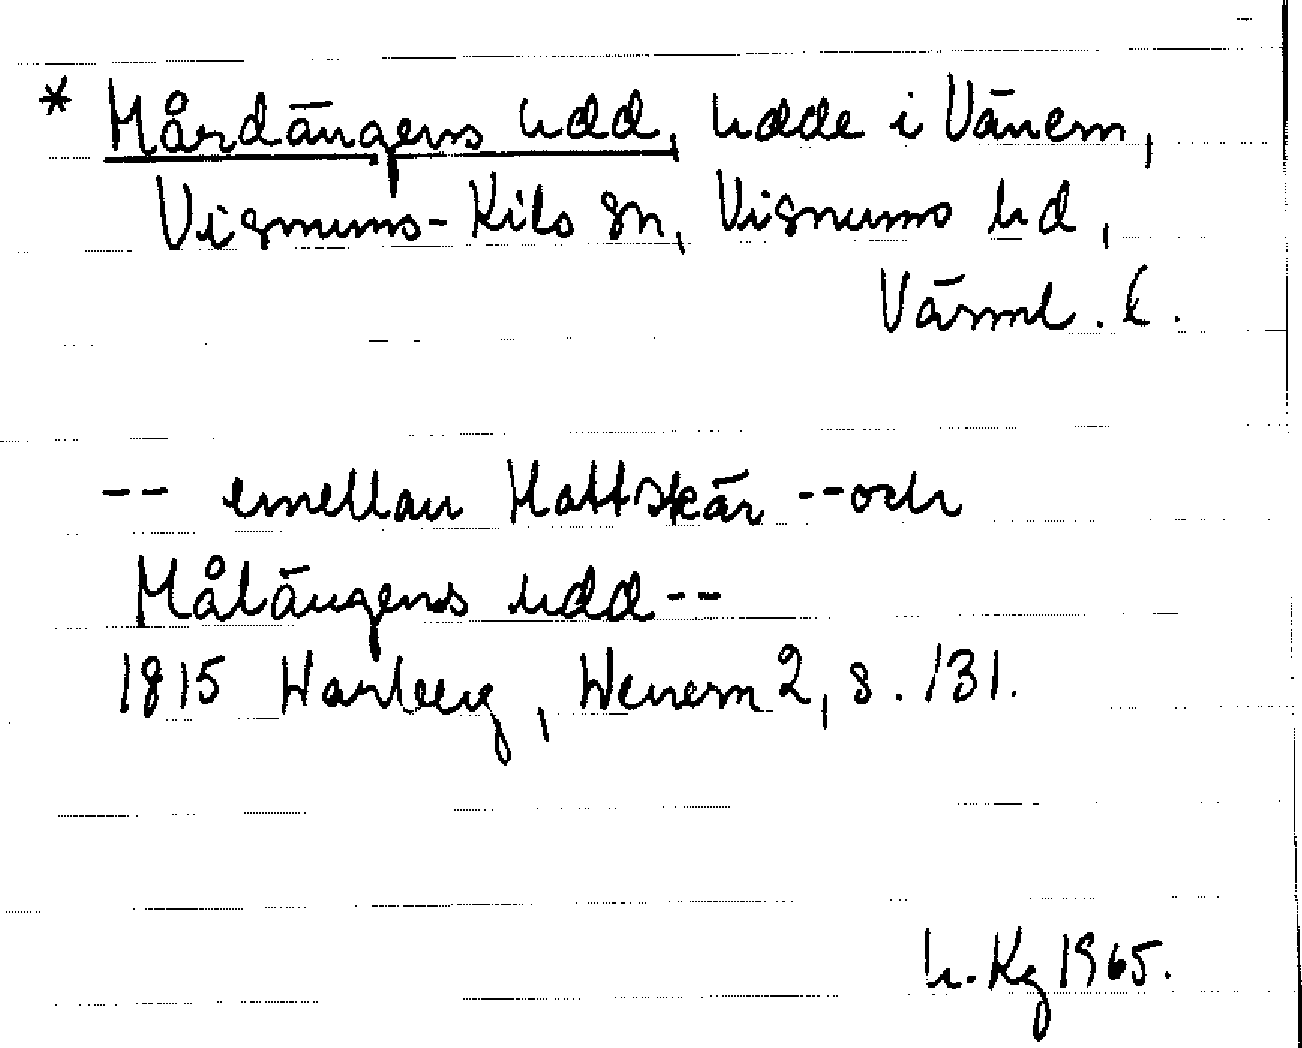 * Mårdängens udd, udde i Vänern,
Visnums-Kils sn, Visnums hd,
Värml. l.
-- emellan Hattskär -- och
Målängens udd --
1815 Warberg, Wenern 2, s. 131.
h. Kg 1965.